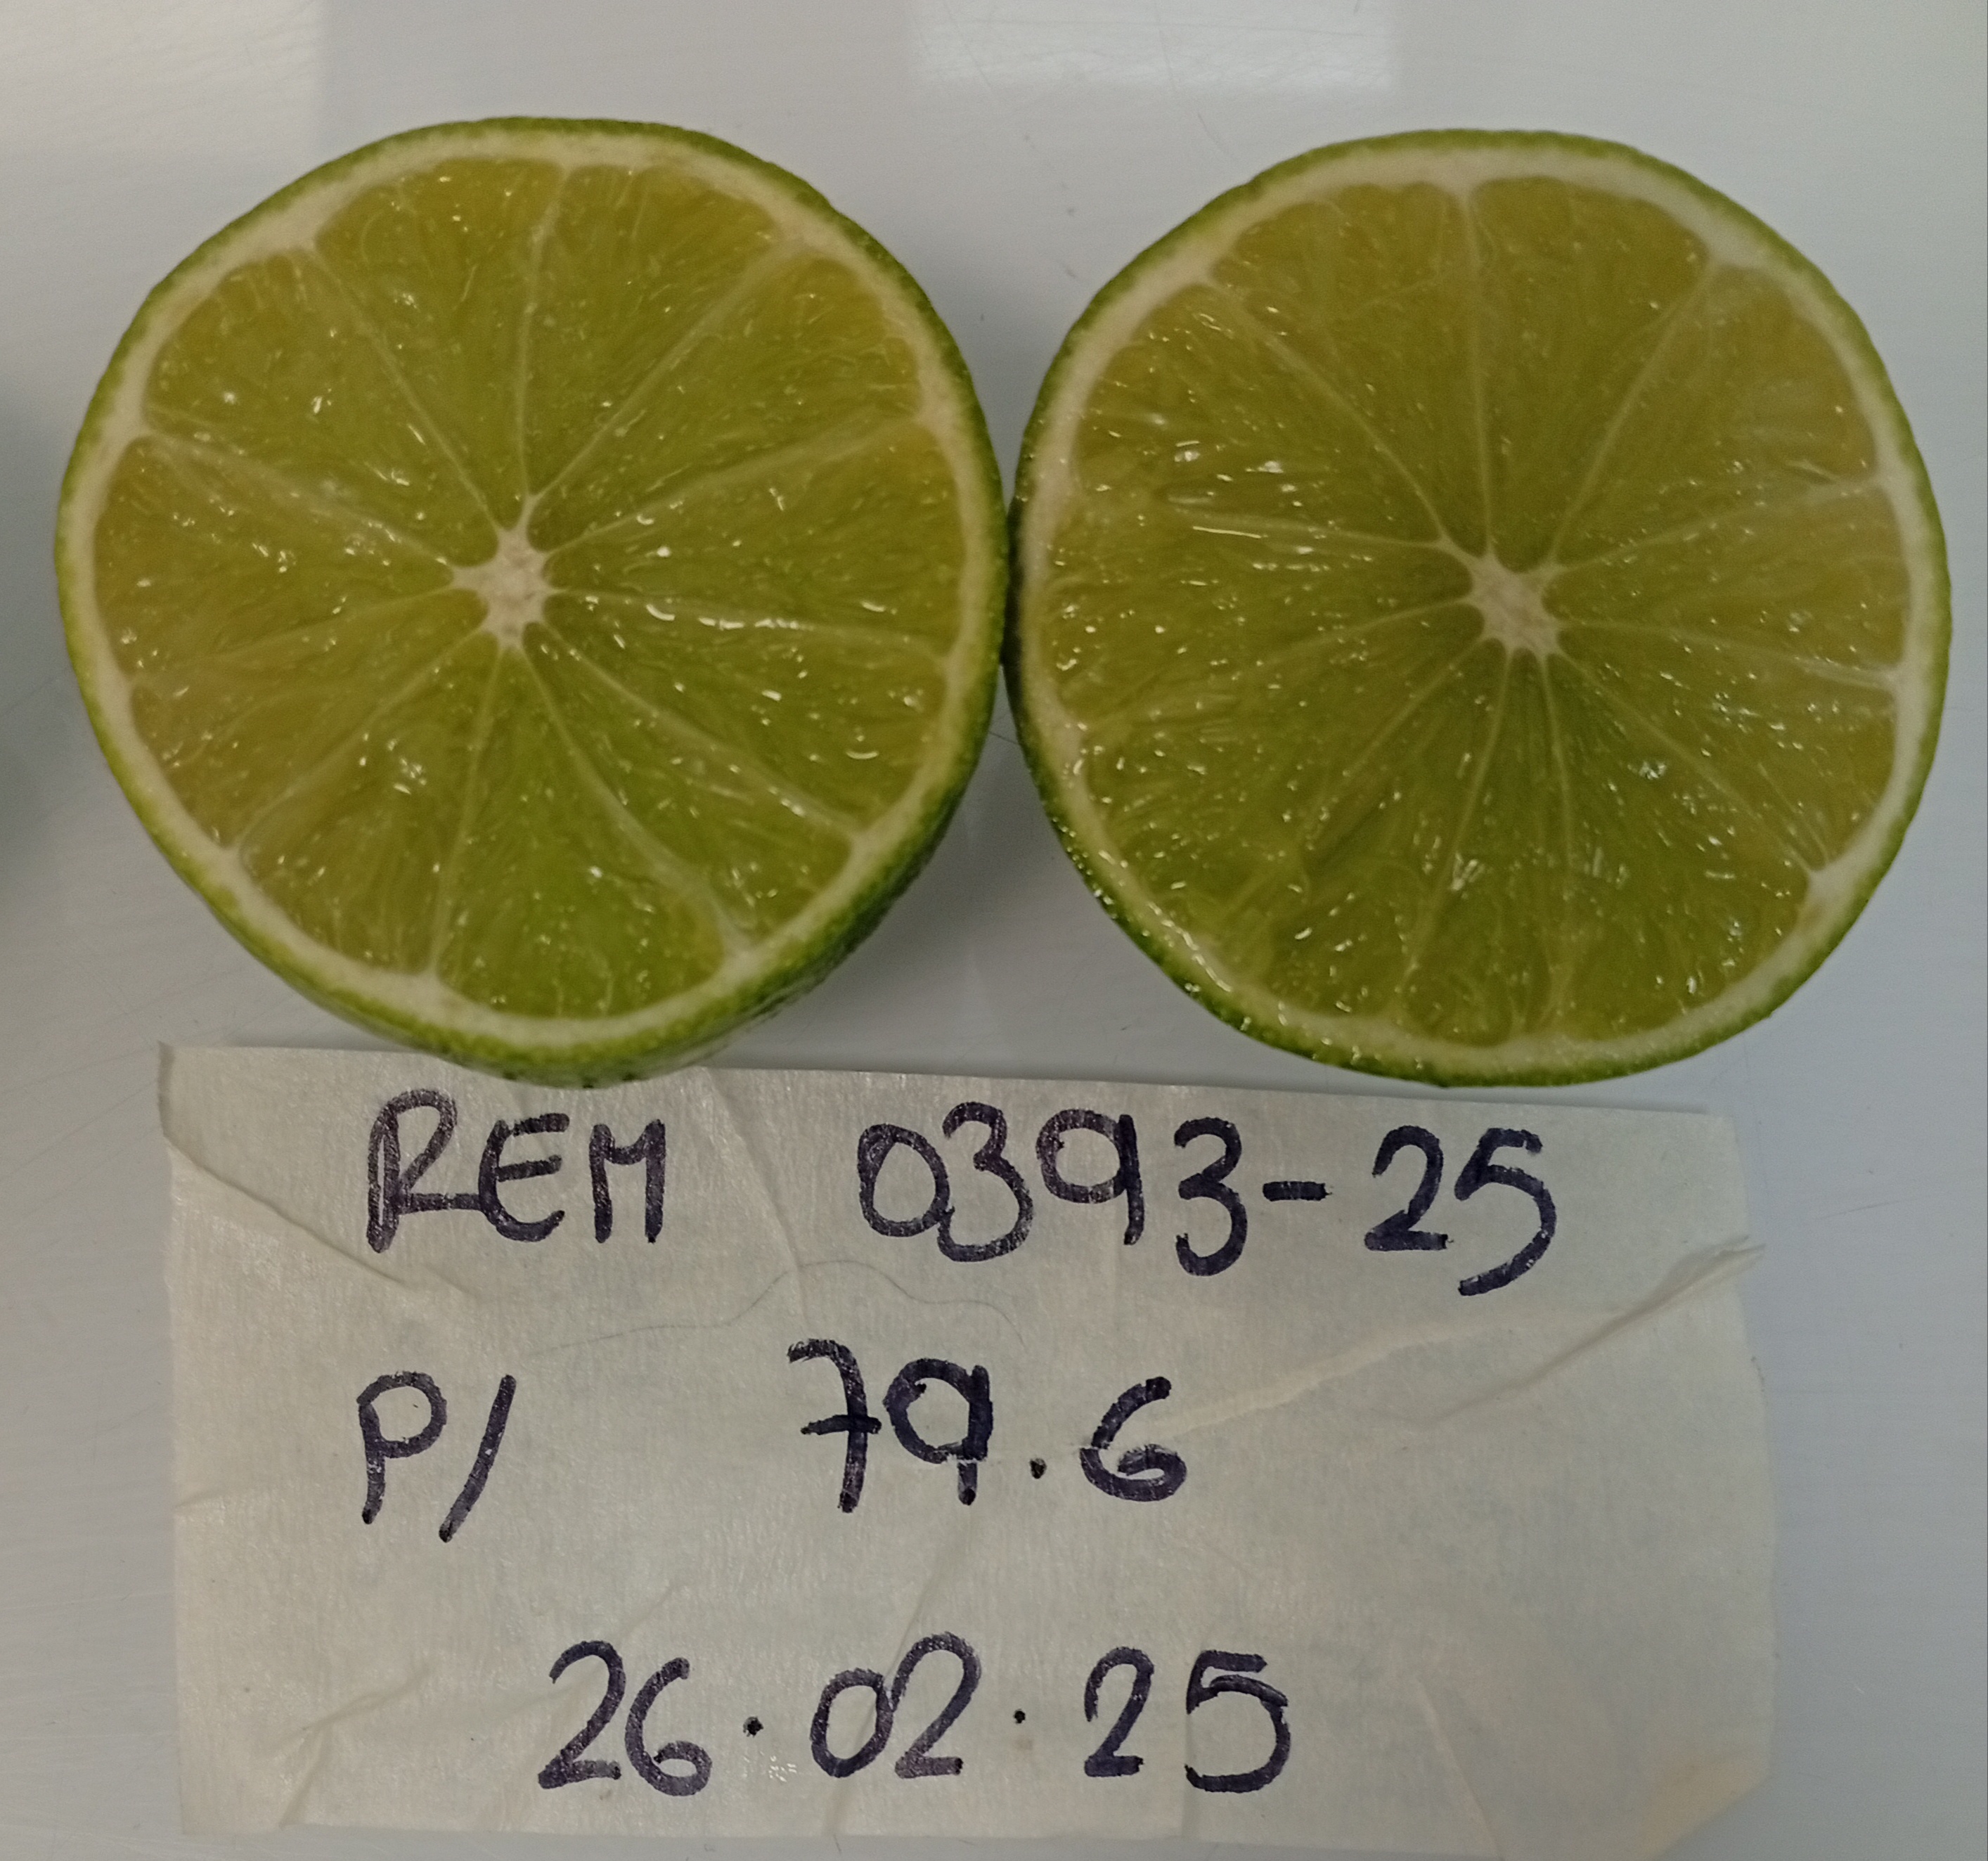 REM 0393-25
P/ 79.6
26.02.25